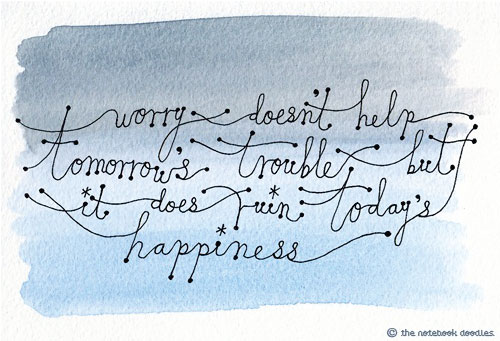 worry doesn't help
tomorrow's trouble but
it does ruin today's
happiness
© the notebook doodles